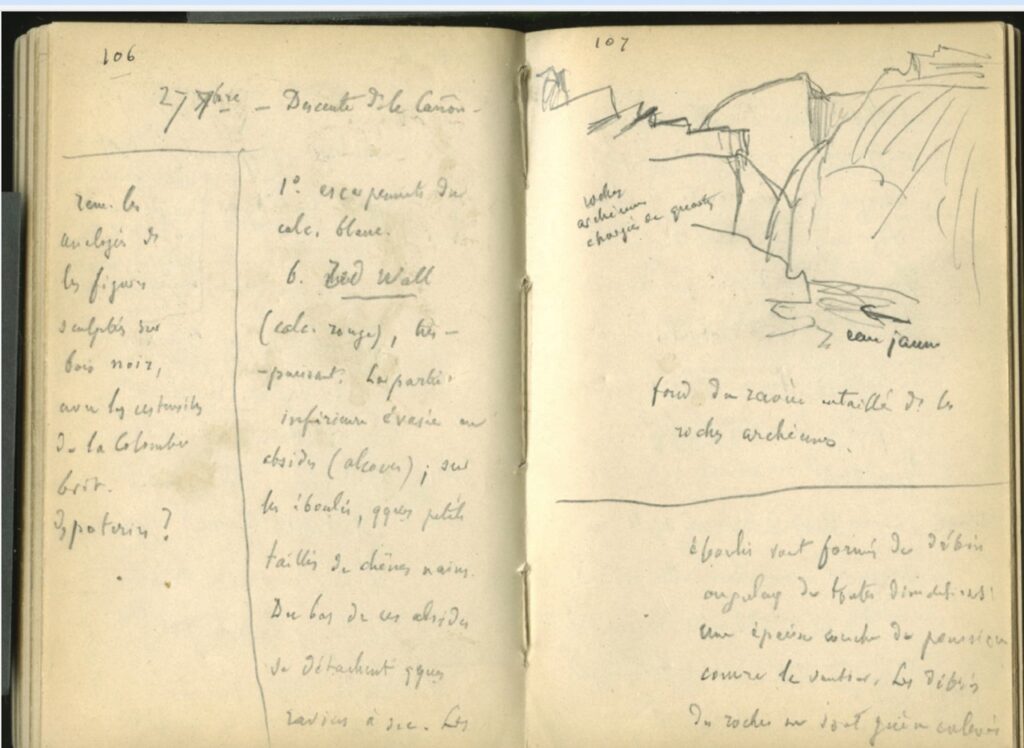 106
27 7bre - Descente ds le Cañon -
rem. les
analogies ds
les figures
sculptées sur
bois noir,
avec les ustensiles
de la Colombie
brit.
des poteries ?
1º escarpements du
calc. blanc.
6. Red Wall
(calc. rouge), très-
-puissant. La partie
inférieure évasée en
absides (alcoves) ; sur
les éboulis, qques petits
taillis de chênes nains.
Du bas de ces absides
se détachent qques
ravins à sec. Les
107
roches
archéennes
chargées de quartz
eau jaune
fond du ravin entaillé ds les
roches archéennes.
éboulis sont formés de débris
anguleux de toutes dimensions :
une épaisse couche de poussière
couvre le sentier. Les débris
de roches ne sont guère enlevés